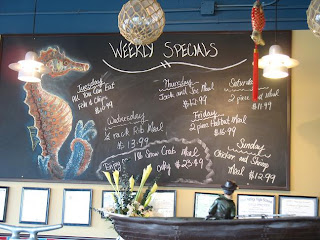 WEEKLY SPECIALS
Tuesday
All You Can Eat
Fish & Chips
Wednesday
½ rack Rib Meal
$13.99
Enjoy
1 lb Snow Crab Meal
only $23.49
Thursday
Jack and Joe Meal
$12.99
Friday
2 piece Halibut Meal
$16.99
Saturday
2 piece Meal
$11.99
Sunday
Chicken and Shrimp
Meal $12.99